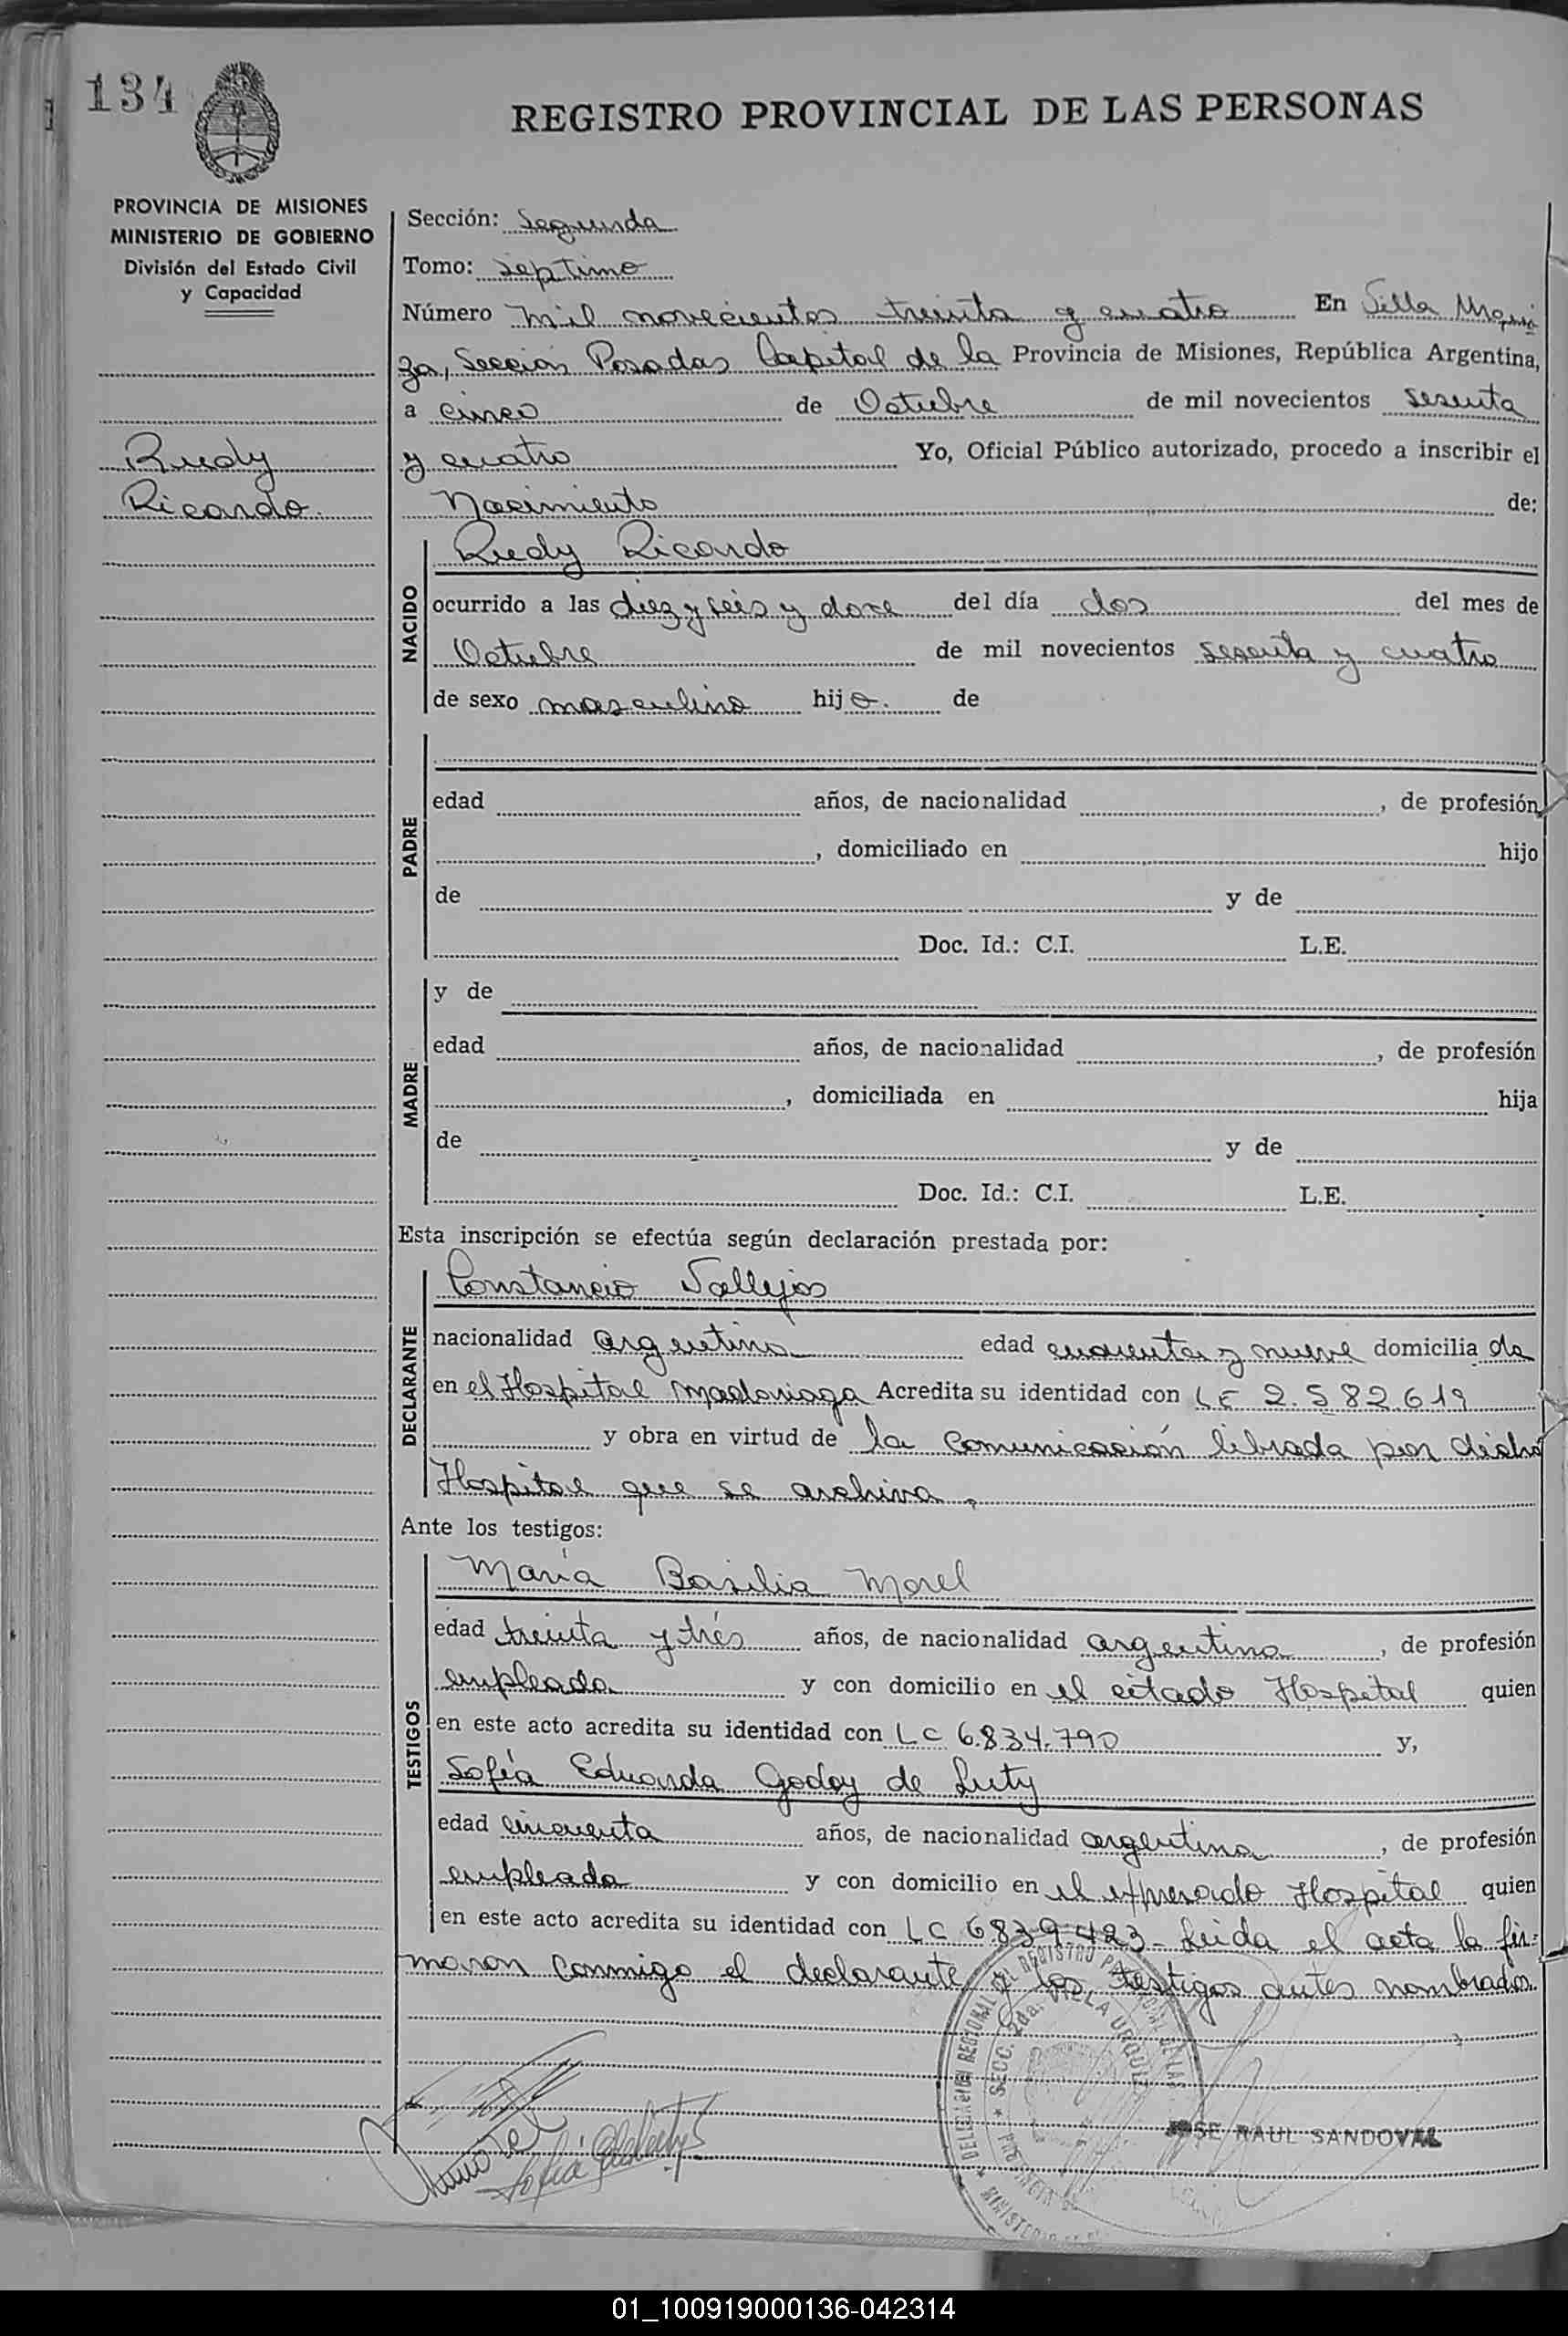 134
REGISTRO PROVINCIAL DE LAS PERSONAS
PROVINCIA DE MISIONES
MINISTERIO DE GOBIERNO
División del Estado Civil
y Capacidad
Rudy
Ricardo.
Sección: Segunda
Tomo: septimo
Número mil novecientos treinta y cuatro En Villa Urqui
za, Sección Posadas Capital de la Provincia de Misiones, República Argentina,
a cinco de Octubre de mil novecientos sesenta
y cuatro Yo, Oficial Público autorizado, procedo a inscribir el
Nacimiento de:
NACIDO
Rudy Ricardo
ocurrido a las diez y seis y doce del día dos del mes de
Octubre de mil novecientos sesenta y cuatro
de sexo masculino hijo. de
PADRE
edad años, de nacionalidad , de profesión
, domiciliado en hijo
de y de
Doc. Id.: C.I. L.E.
MADRE
y de
edad años, de nacionalidad , de profesión
, domiciliada en hija
de y de
Doc. Id.: C.I. L.E.
Esta inscripción se efectúa según declaración prestada por:
DECLARANTE
Constancio Vallejos
nacionalidad argentino edad cuarenta y nueve domicilia do
en el Hospital Madariaga Acredita su identidad con LE 2.582.619
y obra en virtud de la comunicación librada por dicho
Hospital que se archiva.
Ante los testigos:
TESTIGOS
María Basilia Morel
edad treinta y trés años, de nacionalidad argentina, de profesión
empleada y con domicilio en el citado Hospital quien
en este acto acredita su identidad con LC 6.834.790 y,
Sofía Eduarda Godoy de Luty
edad cincuenta años, de nacionalidad argentina, de profesión
empleada y con domicilio en el expresado Hospital quien
en este acto acredita su identidad con LC 6839423- Leida el acta la fir=
maron conmigo el declarante y los testigos antes nombrados.
DELEGACION REGIONAL DEL REGISTRO PROVINCIAL DE LAS
SECC. 2da. VILLA URQUIZ
JOSE RAUL SANDOVAL
01_100919000136-042314